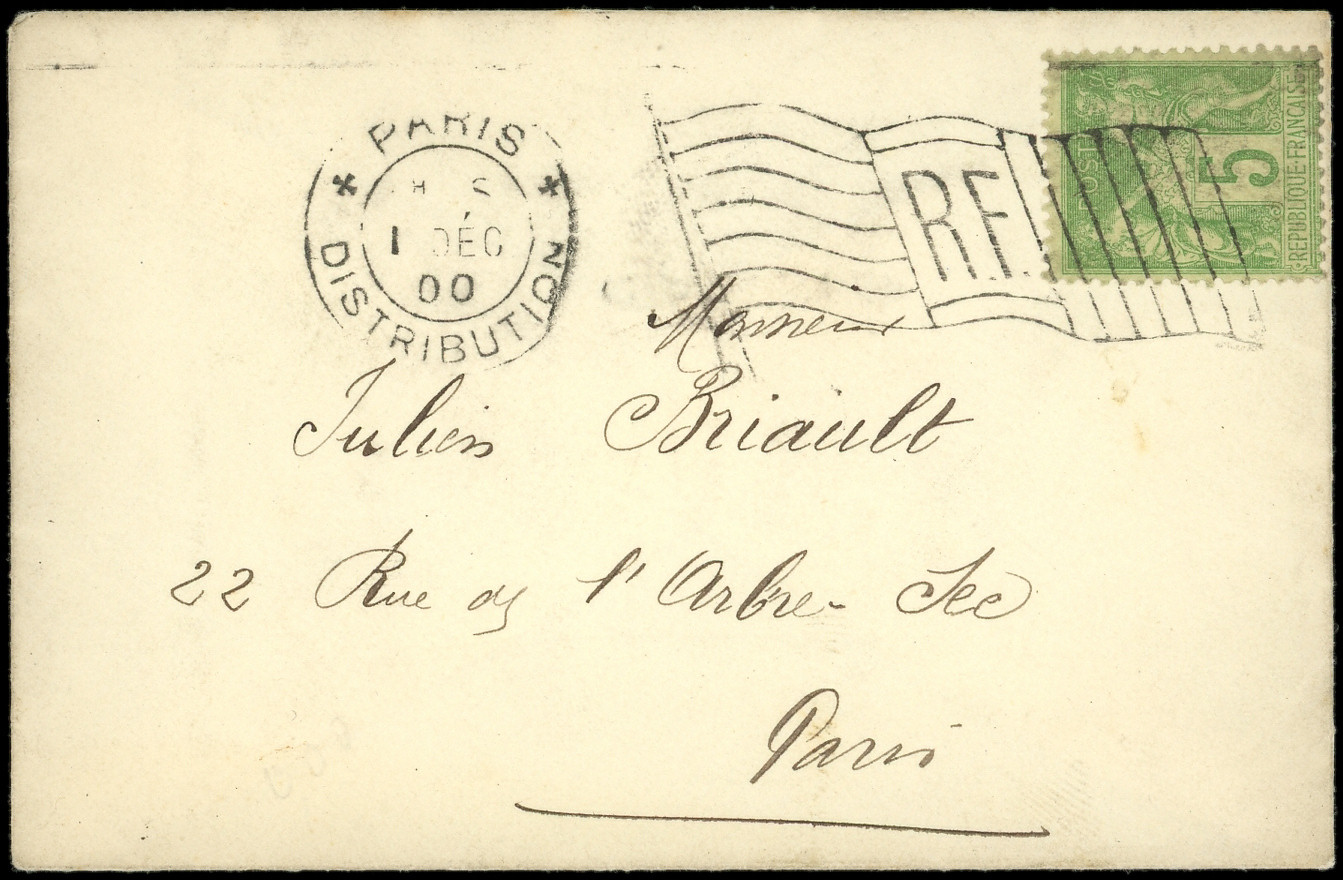 PARIS
1 DÉC
00
DISTRIBUTION
RF
5
POSTE
REPUBLIQUE FRANÇAISE
Monsieur
Julien Briault
22 Rue de l'Arbre-Sec
Paris